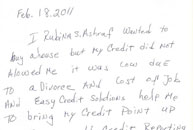 Feb. 18.2011
I Rubina S. Ashraf wanted to
buy a house but my Credit did not
Allowed me it was low due
to a Divorce And Cost of Job
And Easy Credit Solutions help me
to bring my Credit Point up
Credit Reporting